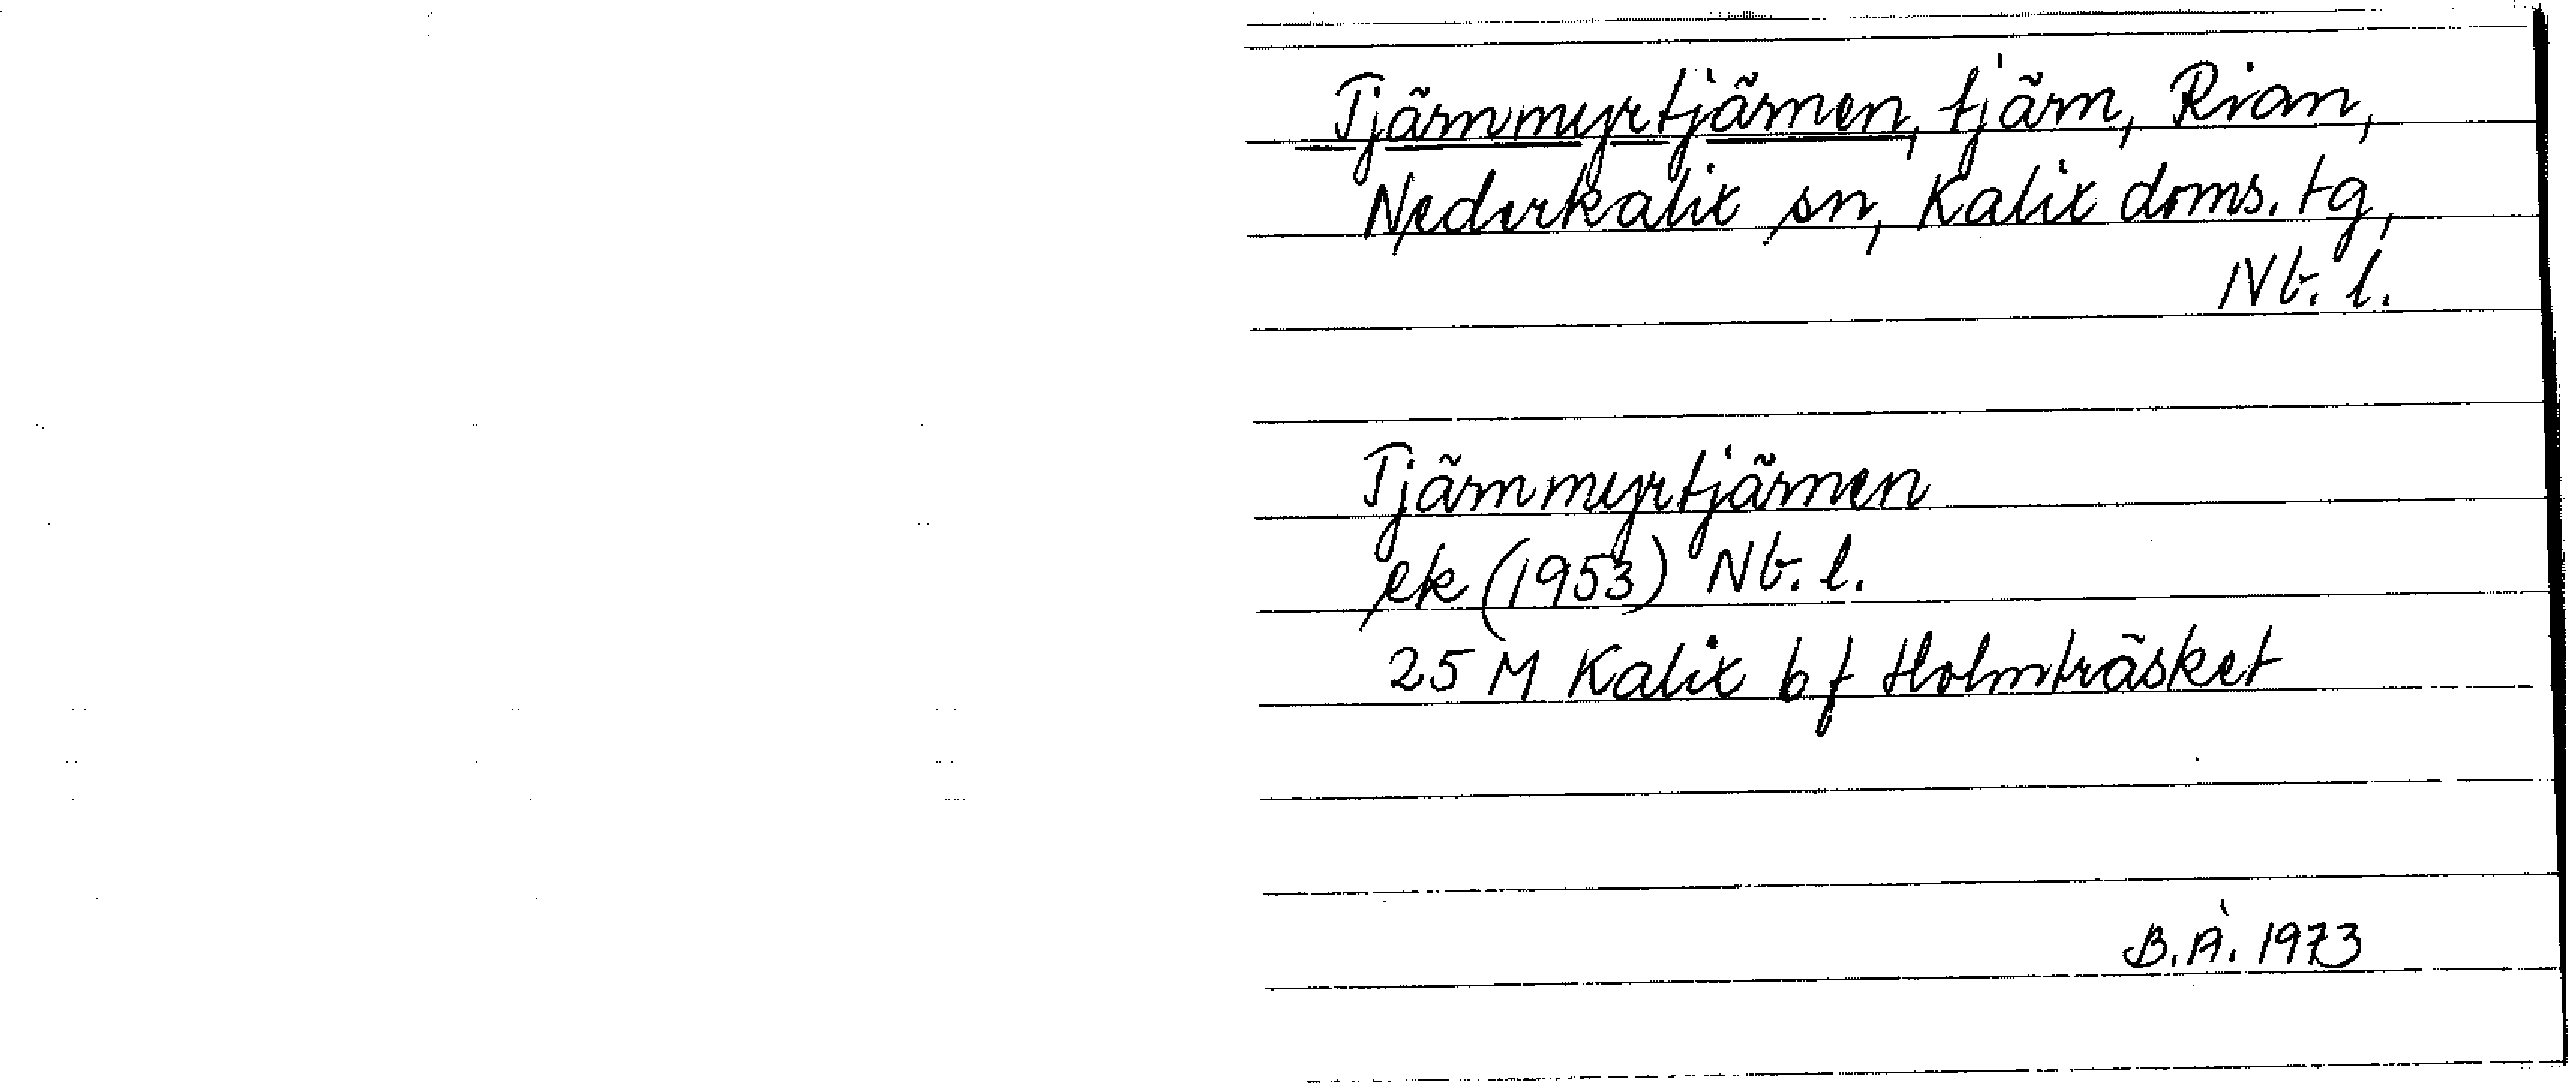 Tjärnmyrtjärnen, tjärn, Rian,
Nederkalix sn, Kalix doms. tg,
Nb. l.
Tjärnmyrtjärnen
ek (1953) Nb. l.
25 M Kalix b f Holmträsket
B.Å. 1973